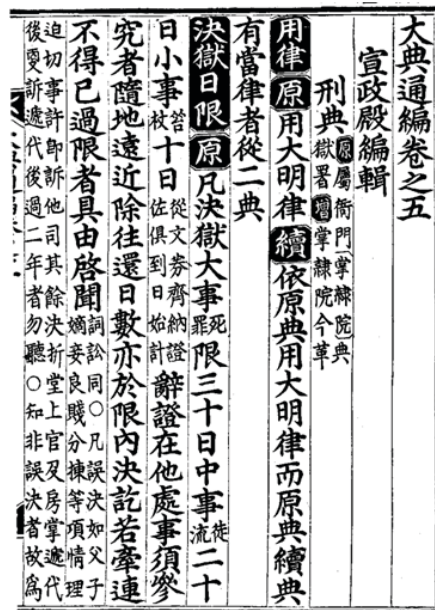 大典通編卷之五
宣政殿編輯
刑典 原屬衙門 掌隷院 典獄署 增 掌隷院今革
用律 原 用大明律 續 依原典用大明律而原典續典
有當律者從二典
決獄日限 原 凡決獄大事 死罪 限三十日中事 徒流 二十
日小事 笞杖 十日 從文券齊納證佐俱到日始計 辭證在他處事須參
究者隨地遠近除往還日數亦於限內決訖若牽連
不得已過限者具由啓聞 詞訟同○凡誤決如父子嫡妾良賤分揀等項情理
迫切事許卽訴他司其餘決折堂上官及房掌遞代後更訴遞代後過二年者勿聽○知非誤決者故爲